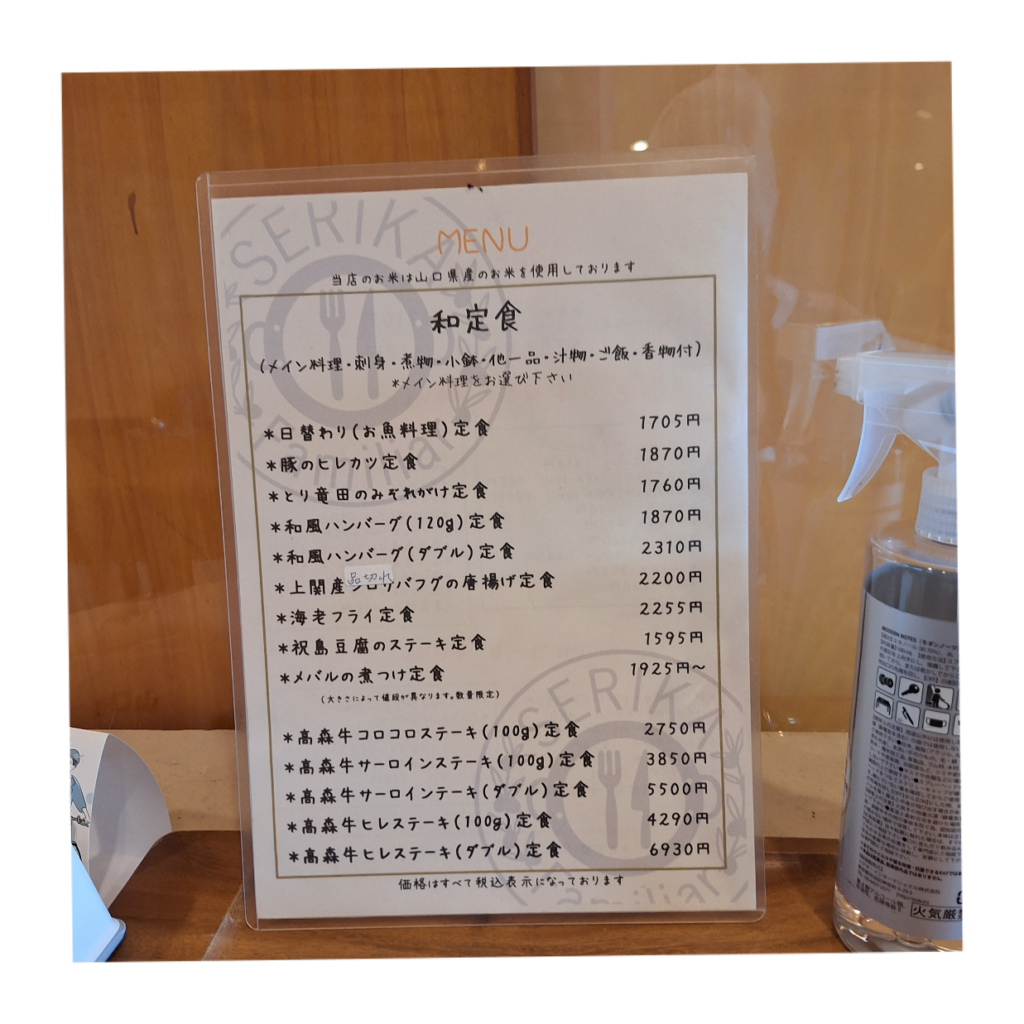 SERIKA
MENU
当店のお米は山口県産のお米を使用しております
和定食
(メイン料理・刺身・煮物・小鉢・他一品・汁物・ご飯・香物付)
*メイン料理をお選び下さい
*日替わり(お魚料理)定食 1705円
*豚のヒレカツ定食 1870円
*とり竜田のみぞれがけ定食 1760円
*和風ハンバーグ(120g)定食 1870円
*和風ハンバーグ(ダブル)定食 2310円
品切れ
*上関産シロサバフグの唐揚げ定食 2200円
*海老フライ定食 2255円
*祝島豆腐のステーキ定食 1595円
*メバルの煮つけ定食 1925円〜
(大きさによって値段が異なります。数量限定)
*高森牛コロコロステーキ(100g)定食 2750円
*高森牛サーロインステーキ(100g)定食 3850円
*高森牛サーロインテーキ(ダブル)定食 5500円
*高森牛ヒレステーキ(100g)定食 4290円
*高森牛ヒレステーキ(ダブル)定食 6930円
価格はすべて税込表示になっております
SERIKA
familiar
MODERN NOTES
火気厳禁